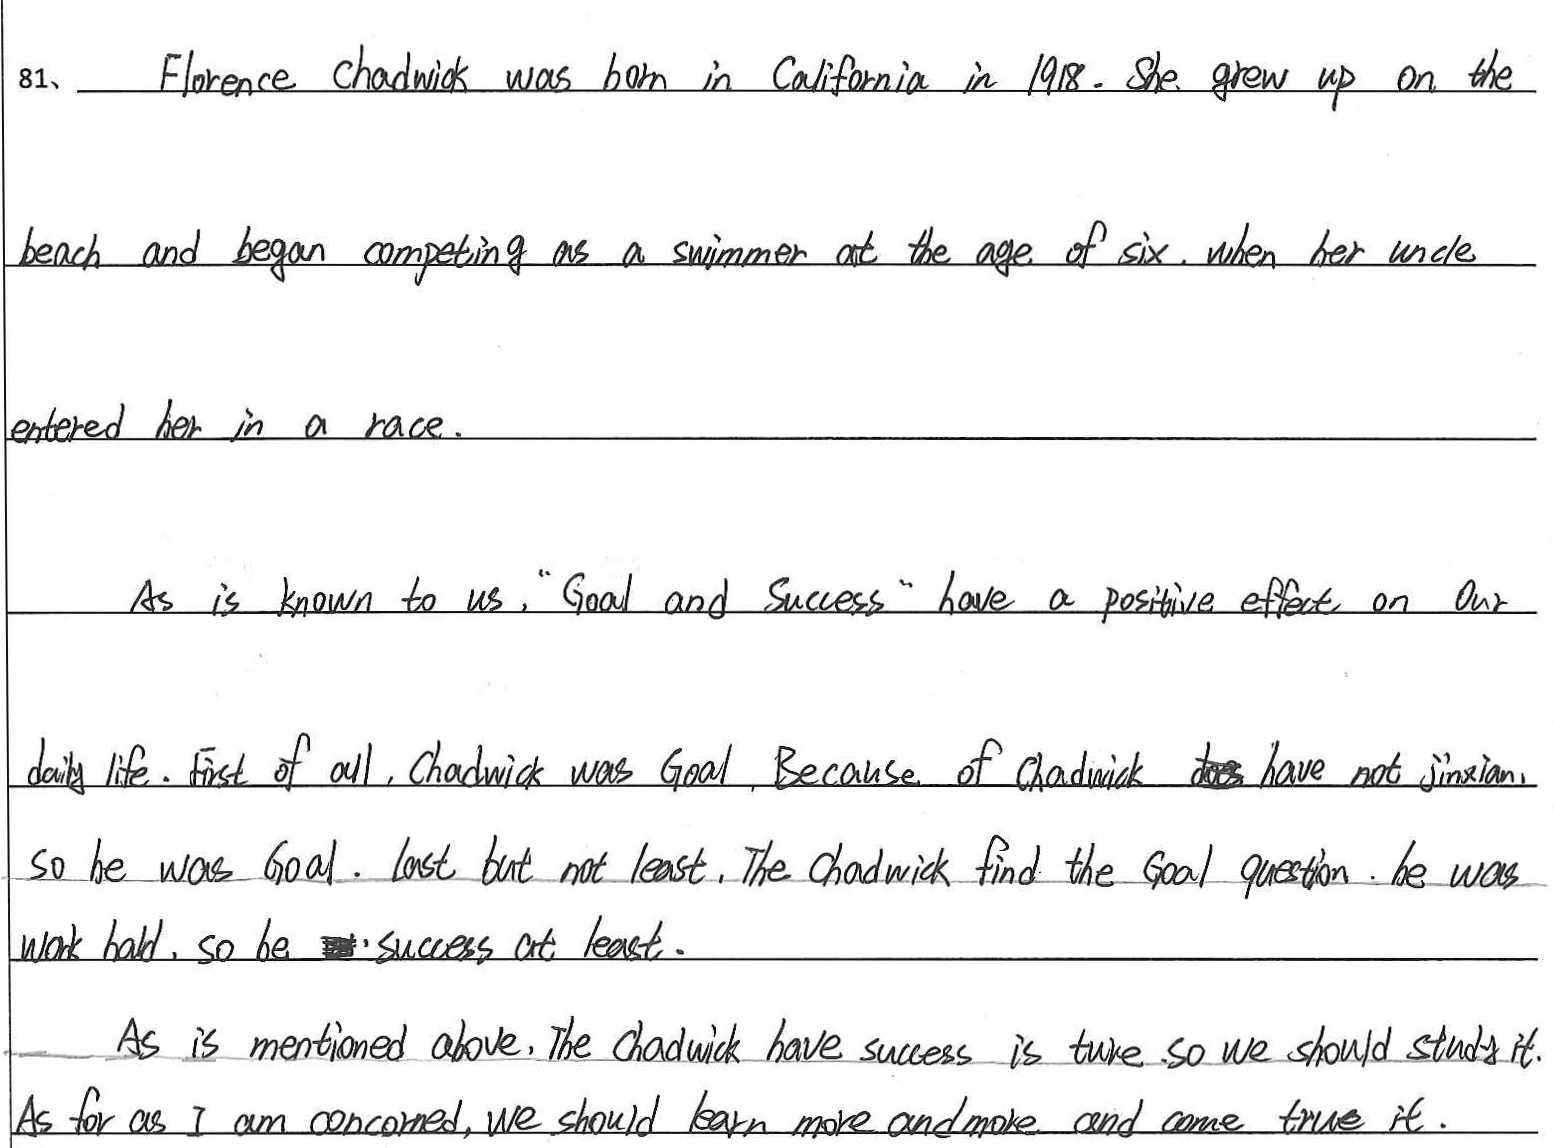 81、 Florence Chadwick was born in California in 1918. She grew up on the
beach and began competing as a swimmer at the age of six. when her uncle
entered her in a race.
As is known to us, "Goal and Success" have a positive effect on our
daily life. First of all, Chadwick was Goal, Because of Chadwick have not jinxian,
so he was Goal. Last but not least, The Chadwick find the Goal question. he was
work hald, so he success at least.
As is mentioned above, The Chadwick have success is ture so we should study it.
As for as I am concorned, we should learn more and more and come true it.